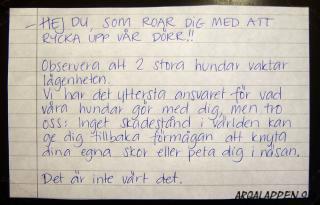 - HEJ DU, SOM ROAR DIG MED ATT
RYCKA UPP VÅR DÖRR!!
Observera att 2 stora hundar vaktar
lägenheten.
Vi har det yttersta ansvaret för vad
våra hundar gör med dig, men tro
oss: Inget skadestånd i världen kan
ge dig tillbaka förmågan att knyta
dina egna skor eller peta dig i näsan.
Det är inte värt det.
ARGALAPPEN.